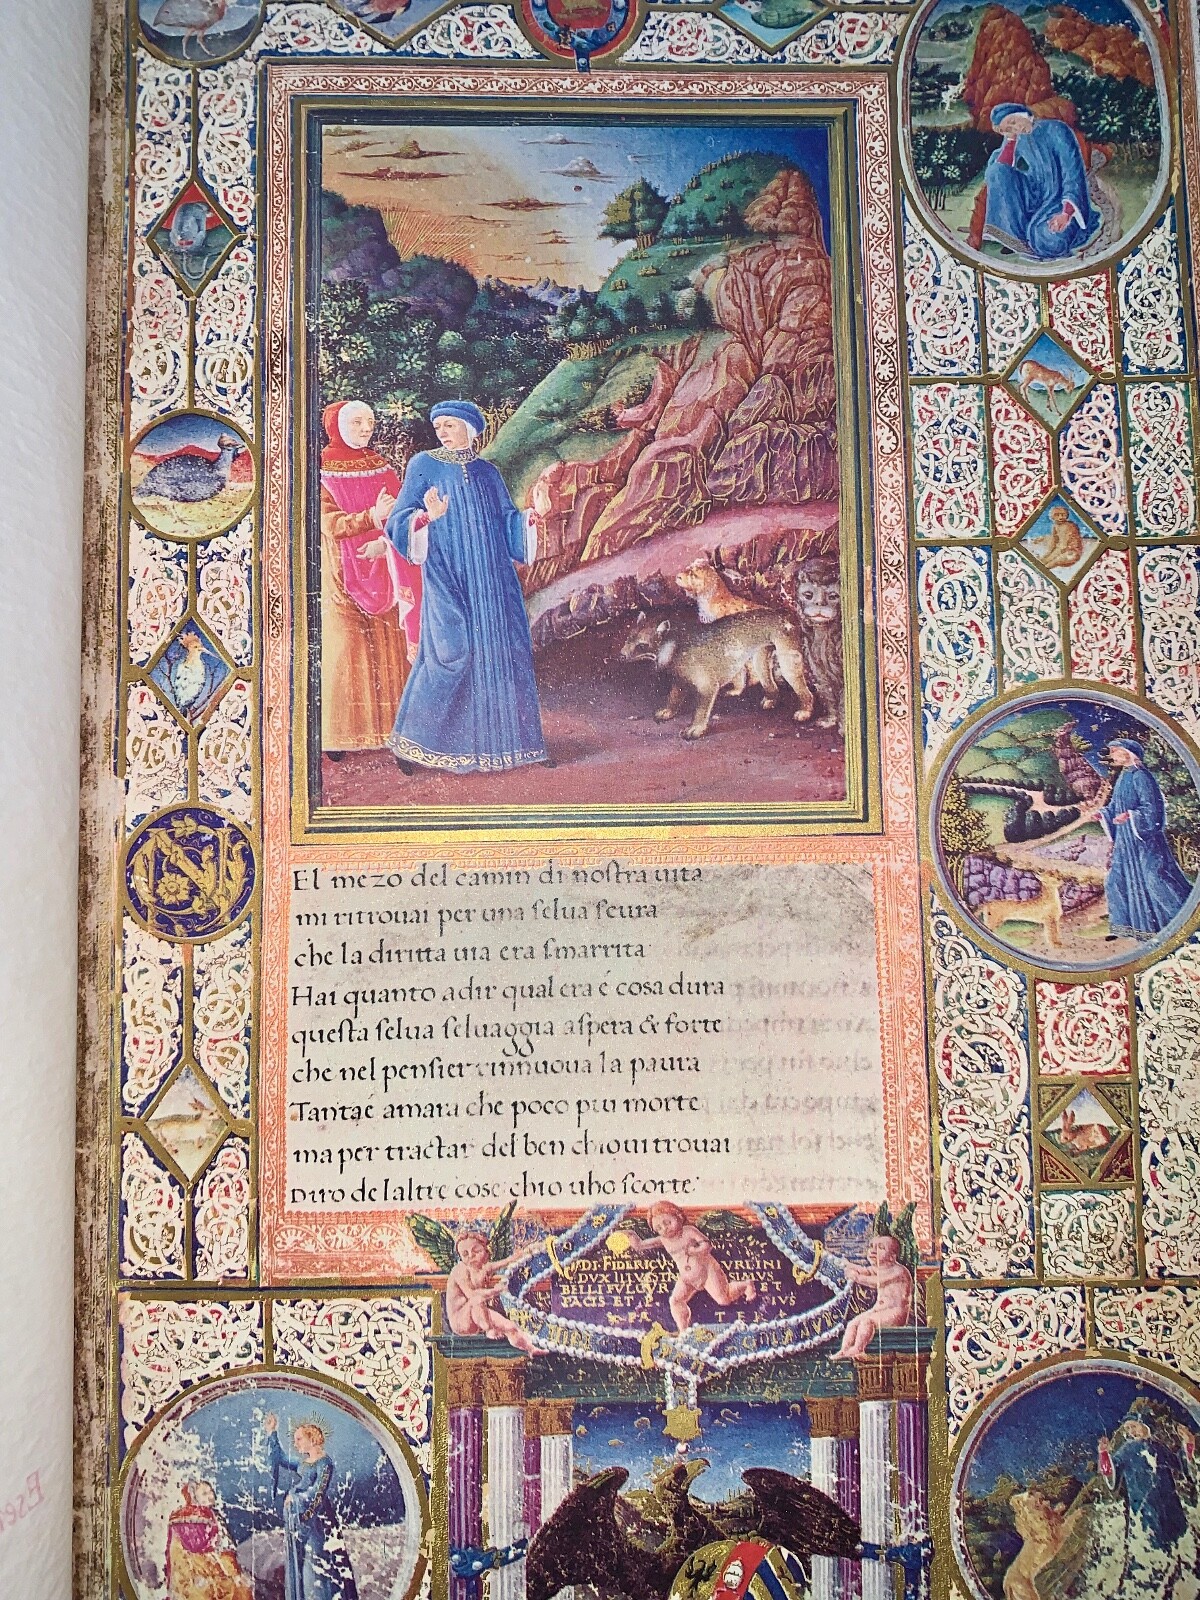 El mezo del camin di nostra uita
mi ritrouai per una selua scura
che la diritta uia era smarrita
Hai quanto adir qual era é cosa dura
questa selua seluaggia aspera & forte
che nel pensier rinnuoua la paura
Tantaé amara che poco piu morte
ma per tractar del ben chioui trouai
Diro delaltre cose chio uho scorte.
DI FIDERICVS VRBINI
DVX ILLVSTR SIMVS
BELLI FVLGVR ET
PACIS ET P. IVS
PA TER